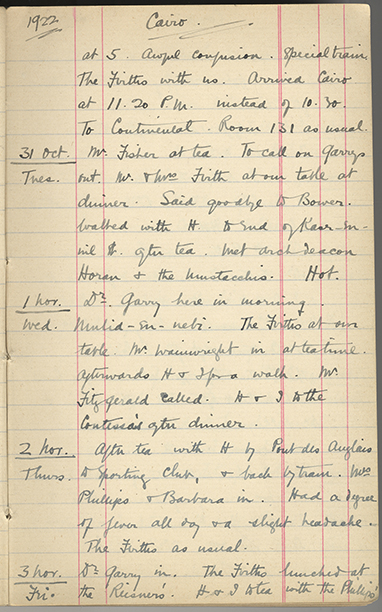 1922 Cairo.
at 5. Awful confusion. Special train.
The Firths with us. Arrived Cairo
at 11.20 P.M. instead of 10.30.
To Continental. Room 131 as usual.
31 Oct. Mr. Fisher at tea. To call on Garrys
Tues. out. Mr. & Mrs Firth at our table at
dinner. Said goodbye to Bower.
Walked with H. to end of Kasr-en-
nil St. after tea. Met archdeacon
Horan & the Mustacchis. Hot.
1 Nov. Dr. Garry here in morning.
Wed. Mulid-en-nebi. The Firths at our
table. Mr. Wainwright in at teatime.
Afterwards H & I for a walk. Mr.
Fitzgerald called. H & I to the
Contessa's after dinner.
2 Nov. After tea with H by Pont des Anglais
Thurs. to Sporting Club, & back by tram. Mrs
Phillips & Barbara in. Had a degree
of fever all day & a slight headache.
The Firths as usual.
3 Nov. Dr. Garry in. The Firths lunched at
Fri. the Reisners. H & I to tea with the Phillips'